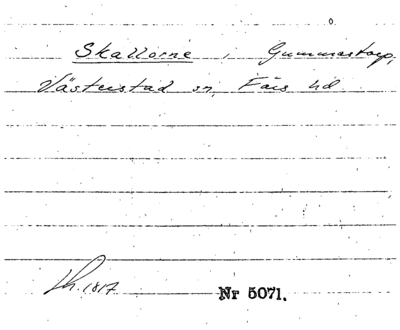 Skallorne, Gummastorp,
Västerstad sn, Färs hd
Lh. 1817 Nr 5071.